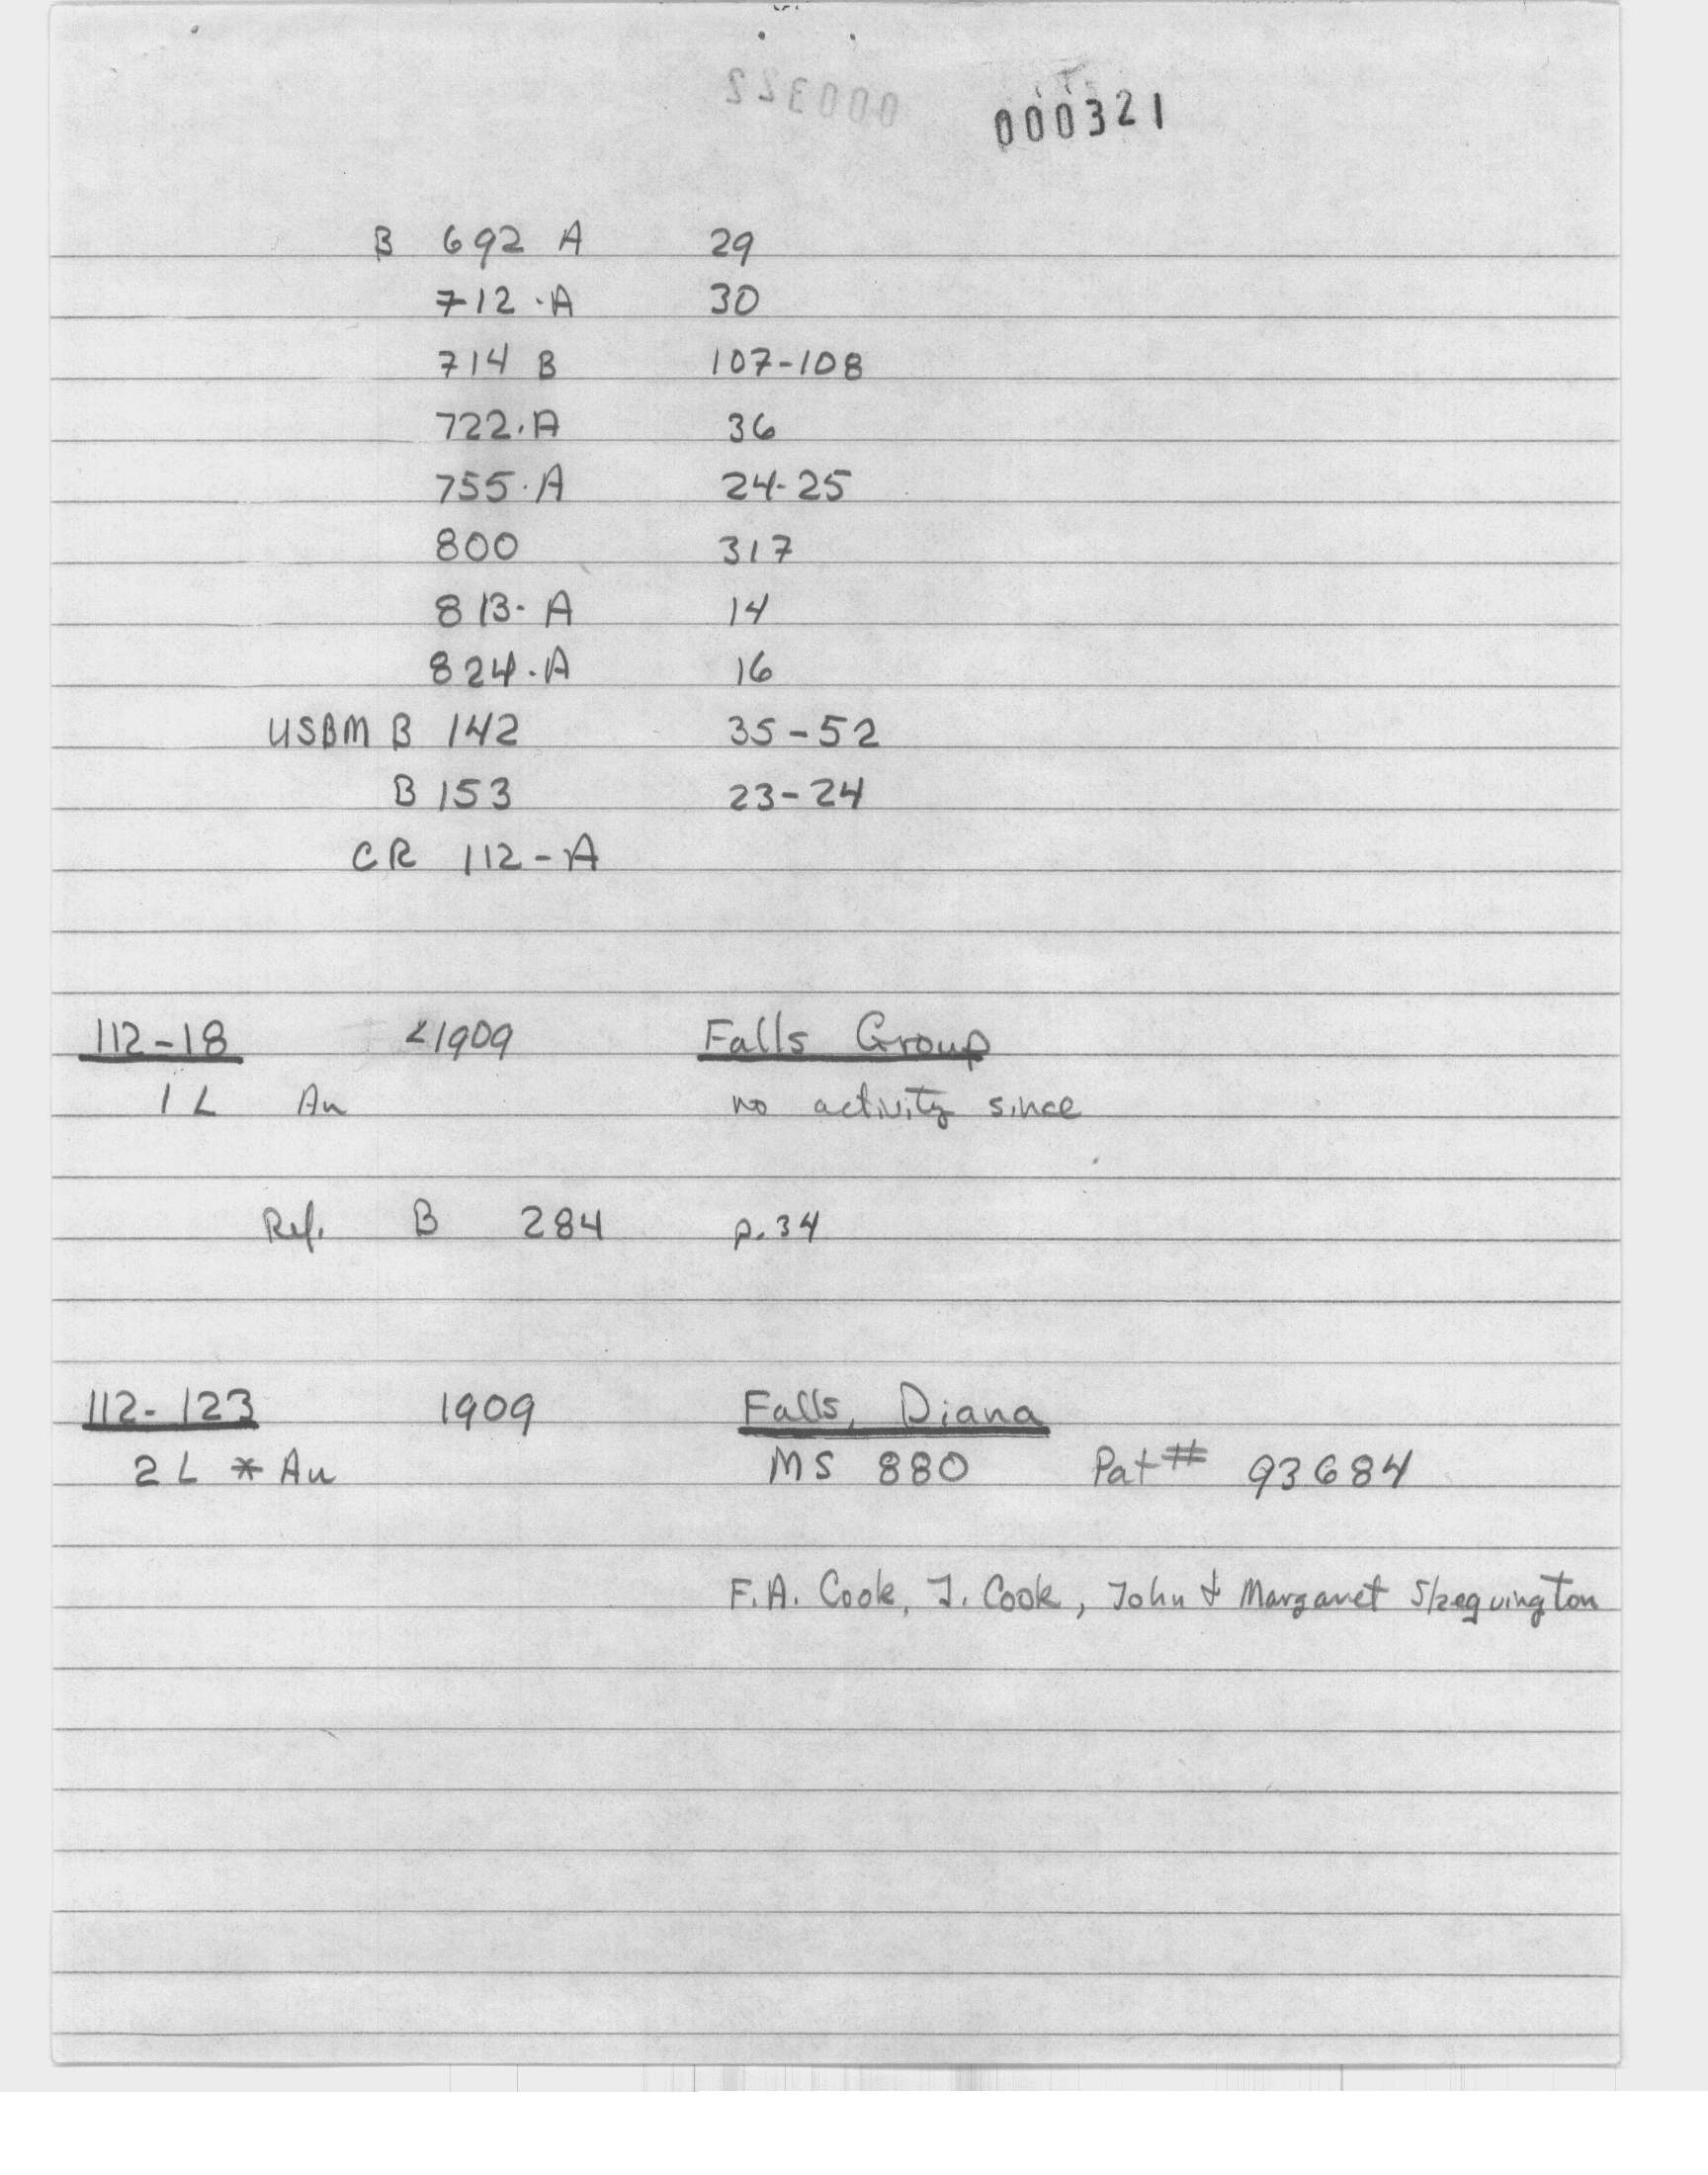 000322
000321
B 692 A 29
712-A 30
714 B 107-108
722-A 36
755-A 24-25
800 317
813-A 14
824-A 16
USBM B 142 35-52
B 153 23-24
CR 112-A
112-18 <1909 Falls Group
1 L Au no activity since
Ref. B 284 p.34
112-123 1909 Falls, Diana
2 L * Au MS 880 Pat# 93684
F.A. Cook, J. Cook, John & Margaret Skequington